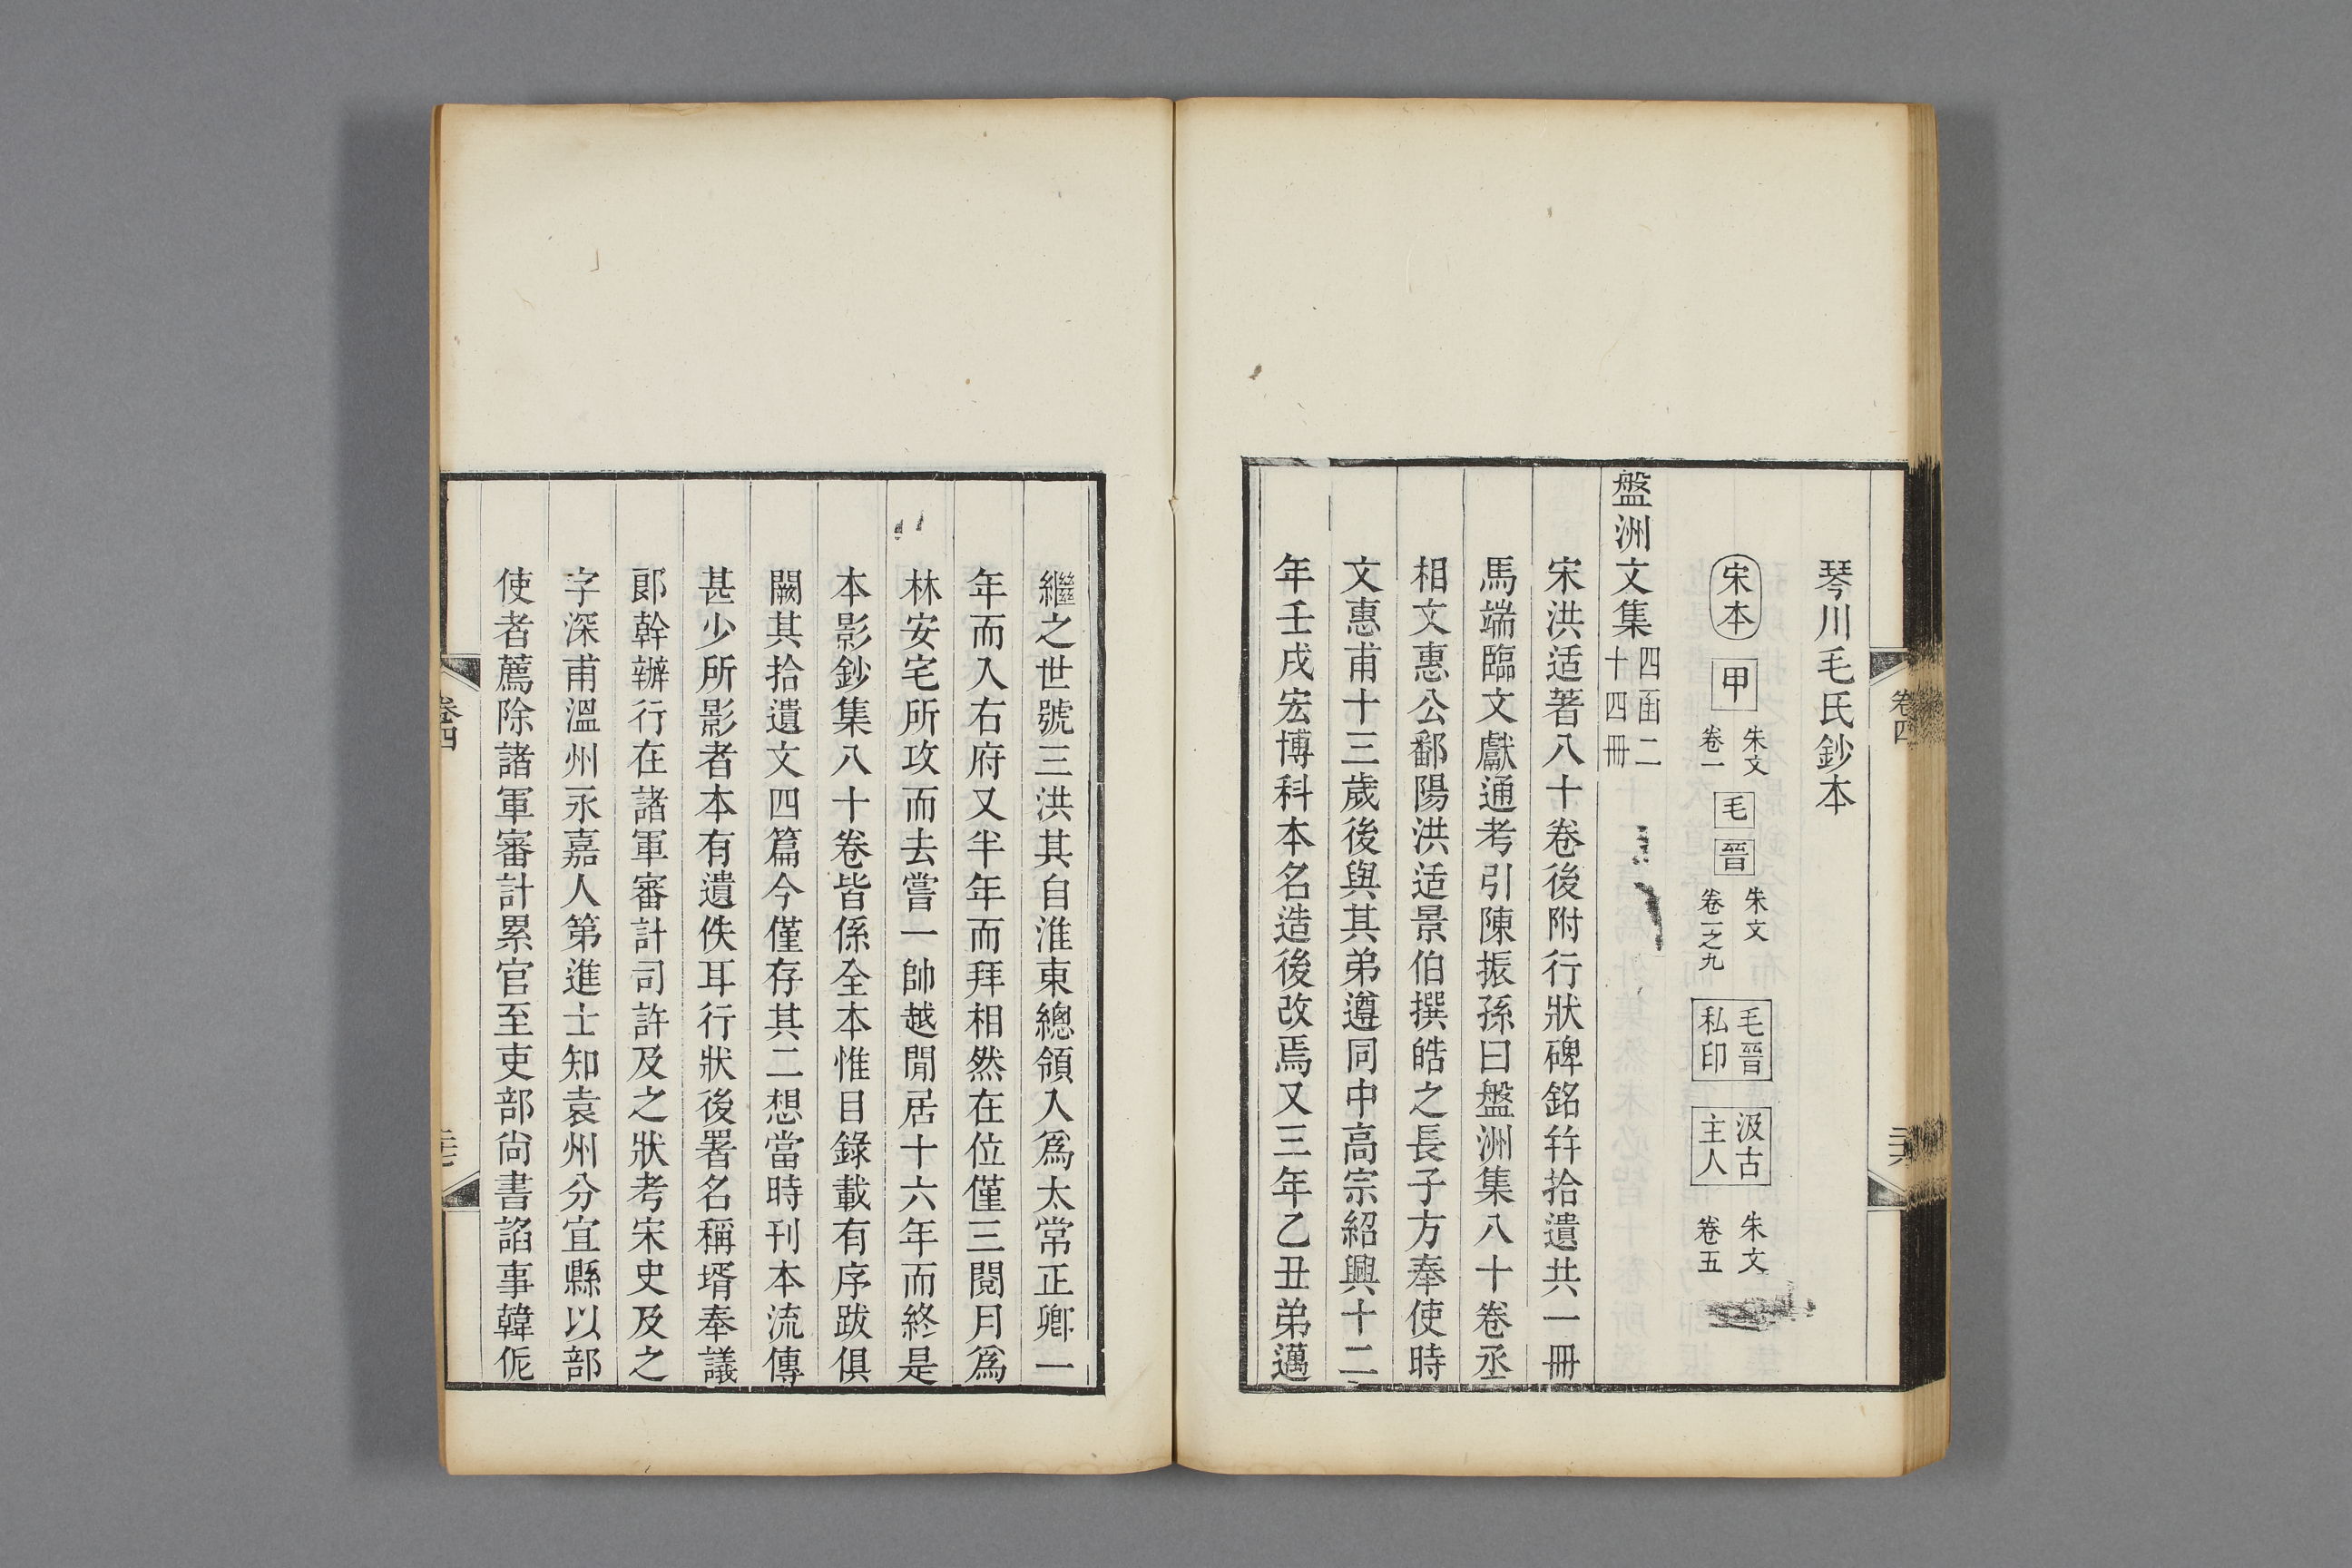 琴川毛氏鈔本
宋本 甲 朱文卷一 毛 晉 朱文卷二之九 毛晉私印 汲古主人 朱文卷五
盤洲文集 四函二十四冊
宋洪适著八十卷後附行狀碑銘并拾遺共一冊
馬端臨文獻通考引陳振孫曰盤洲集八十卷丞
相文惠公鄱陽洪适景伯撰皓之長子方奉使時
文惠甫十三歲後與其弟遵同中高宗紹興十二
年壬戌宏博科本名造後改焉又三年乙丑弟邁
卷四
繼之世號三洪其自淮東總領入爲太常正卿一
年而入右府又半年而拜相然在位僅三閱月爲
林安宅所攻而去嘗一帥越閒居十六年而終是
本影鈔集八十卷皆係全本惟目錄載有序跋俱
闕其拾遺文四篇今僅存其二想當時刊本流傳
甚少所影者本有遺佚耳行狀後署名稱壻奉議
郎幹辦行在諸軍審計司許及之狀考宋史及之
字深甫溫州永嘉人第進士知袁州分宜縣以部
使者薦除諸軍審計累官至吏部尙書諂事韓侂
卷四